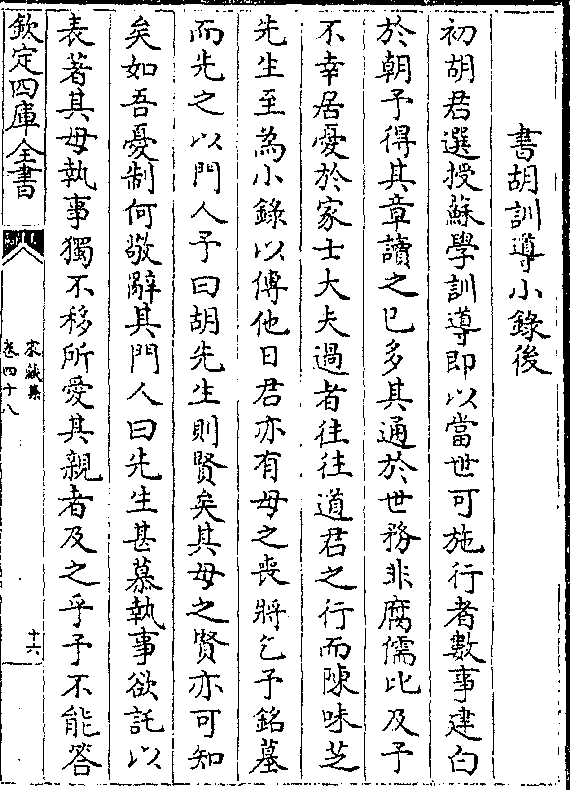 書胡訓導小錄後
初胡君選授蘇學訓導即以當世可施行者數事建白
於朝予得其章讀之已多其通於世務非腐儒比及予
不幸居憂於家士大夫過者往往道君之行而陳味芝
先生至為小錄以傳他日君亦有母之喪將乞予銘墓
而先之以門人予曰胡先生則賢矣其母之賢亦可知
矣如吾憂制何敬辭其門人曰先生甚慕執事欲託以
表著其母執事獨不移所愛其親者及之乎予不能答
欽定四庫全書
家藏集
卷四十八
十六